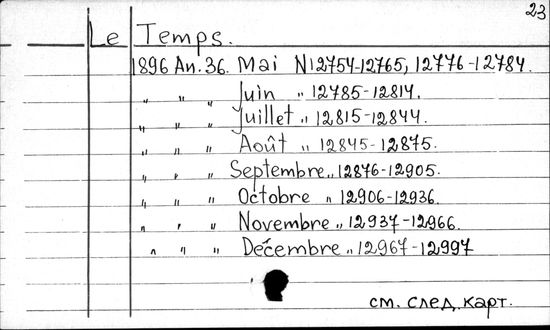 23
Le Temps.
1896 An. 36. Mai N12754-12765, 12776-12784.
„ „ „ Juin „ 12785-12814.
„ „ „ Juillet „ 12815-12844.
„ „ „ Août „ 12845-12875.
„ „ „ Septembre „ 12876-12905.
„ „ „ Octobre „ 12906-12936.
„ „ „ Novembre „ 12937-12966.
„ „ „ Décembre „ 12967-12997
см. след. карт.